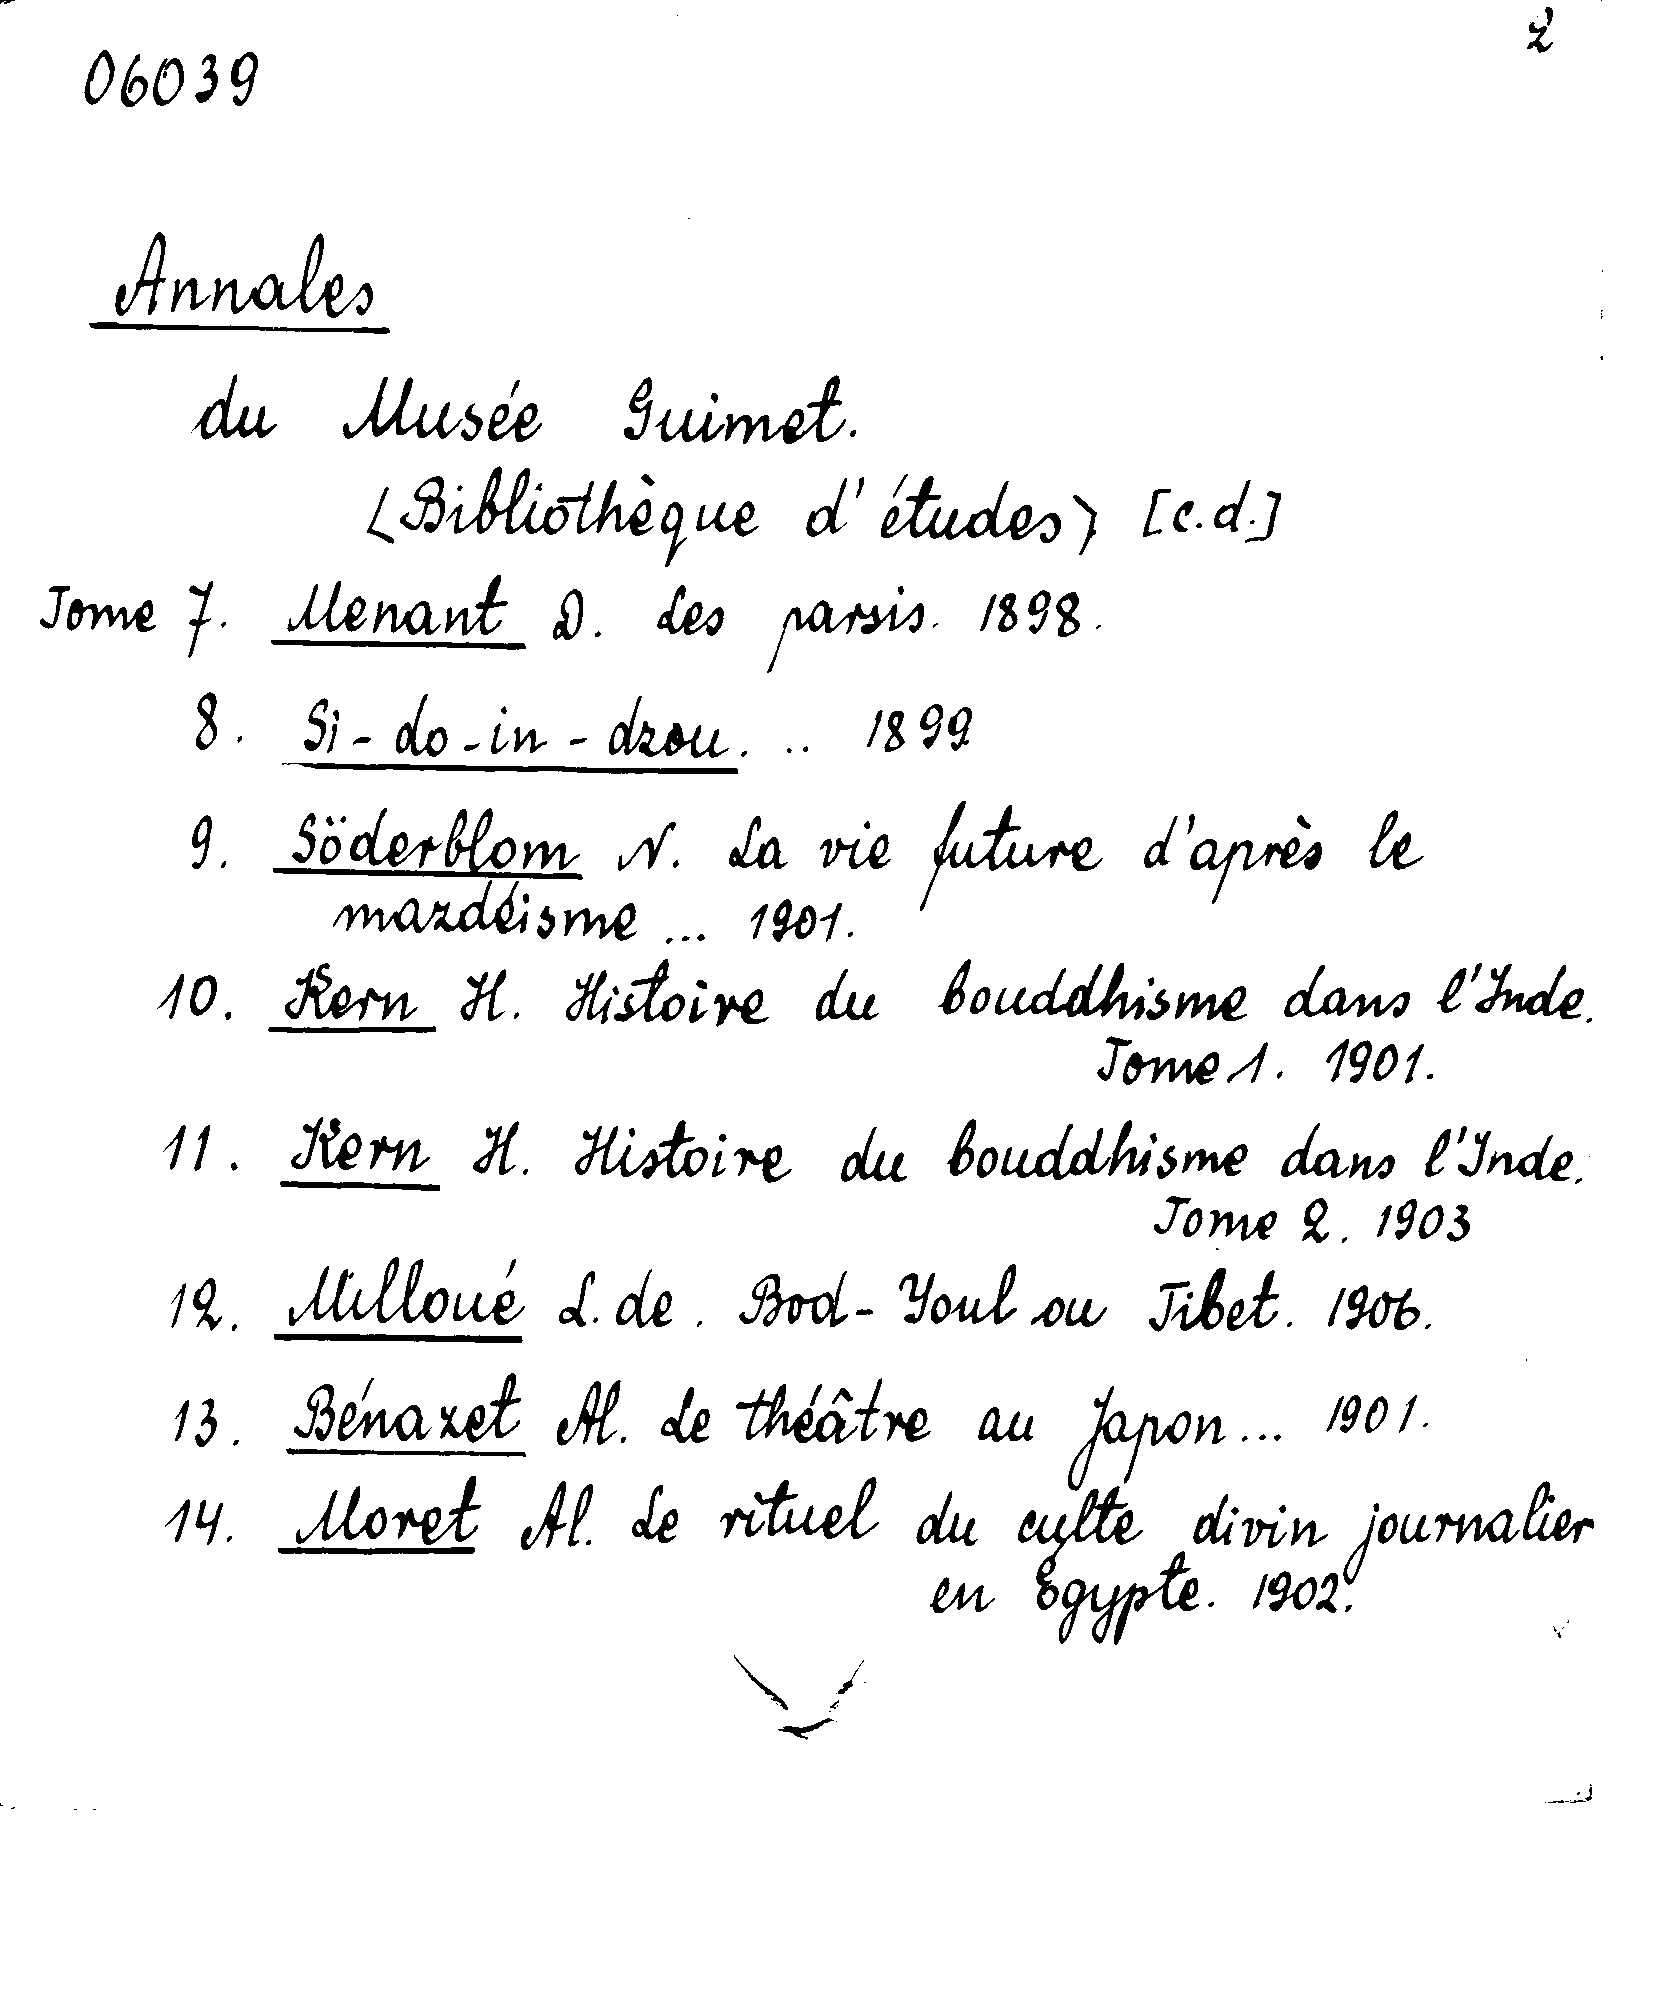 2
06039
Annales
du Musée Guimet.
<Bibliothèque d'études> [c.d.]
Tome 7. Menant D. Les parsis. 1898.
8. Si-do-in-dzou... 1899
9. Söderblom N. La vie future d'après le
mazdéisme ... 1901.
10. Kern H. Histoire du bouddhisme dans l'Inde.
Tome 1. 1901.
11. Kern H. Histoire du bouddhisme dans l'Inde.
Tome 2. 1903
12. Milloué L. de. Bod-Youl ou Tibet. 1906.
13. Bénazet Al. Le théâtre au Japon... 1901.
14. Moret Al. Le rituel du culte divin journalier
en Egypte. 1902.